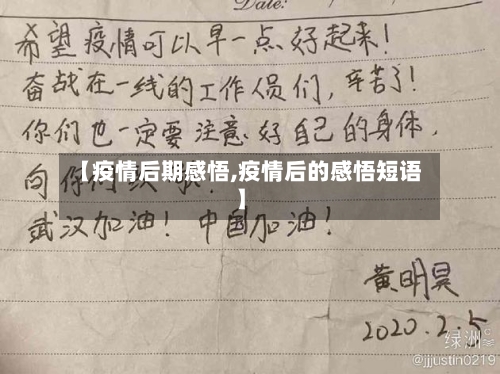 Date:
希望疫情可以早一点好起来!
奋战在一线的工作人员们,辛苦了!
你们也一定要注意好自己的身体,
【疫情后期感悟,疫情后的感悟短语
】
向你们
武汉加油!中国加油!
黄明昊
2020.2.5
绿洲
@jjjustin0219